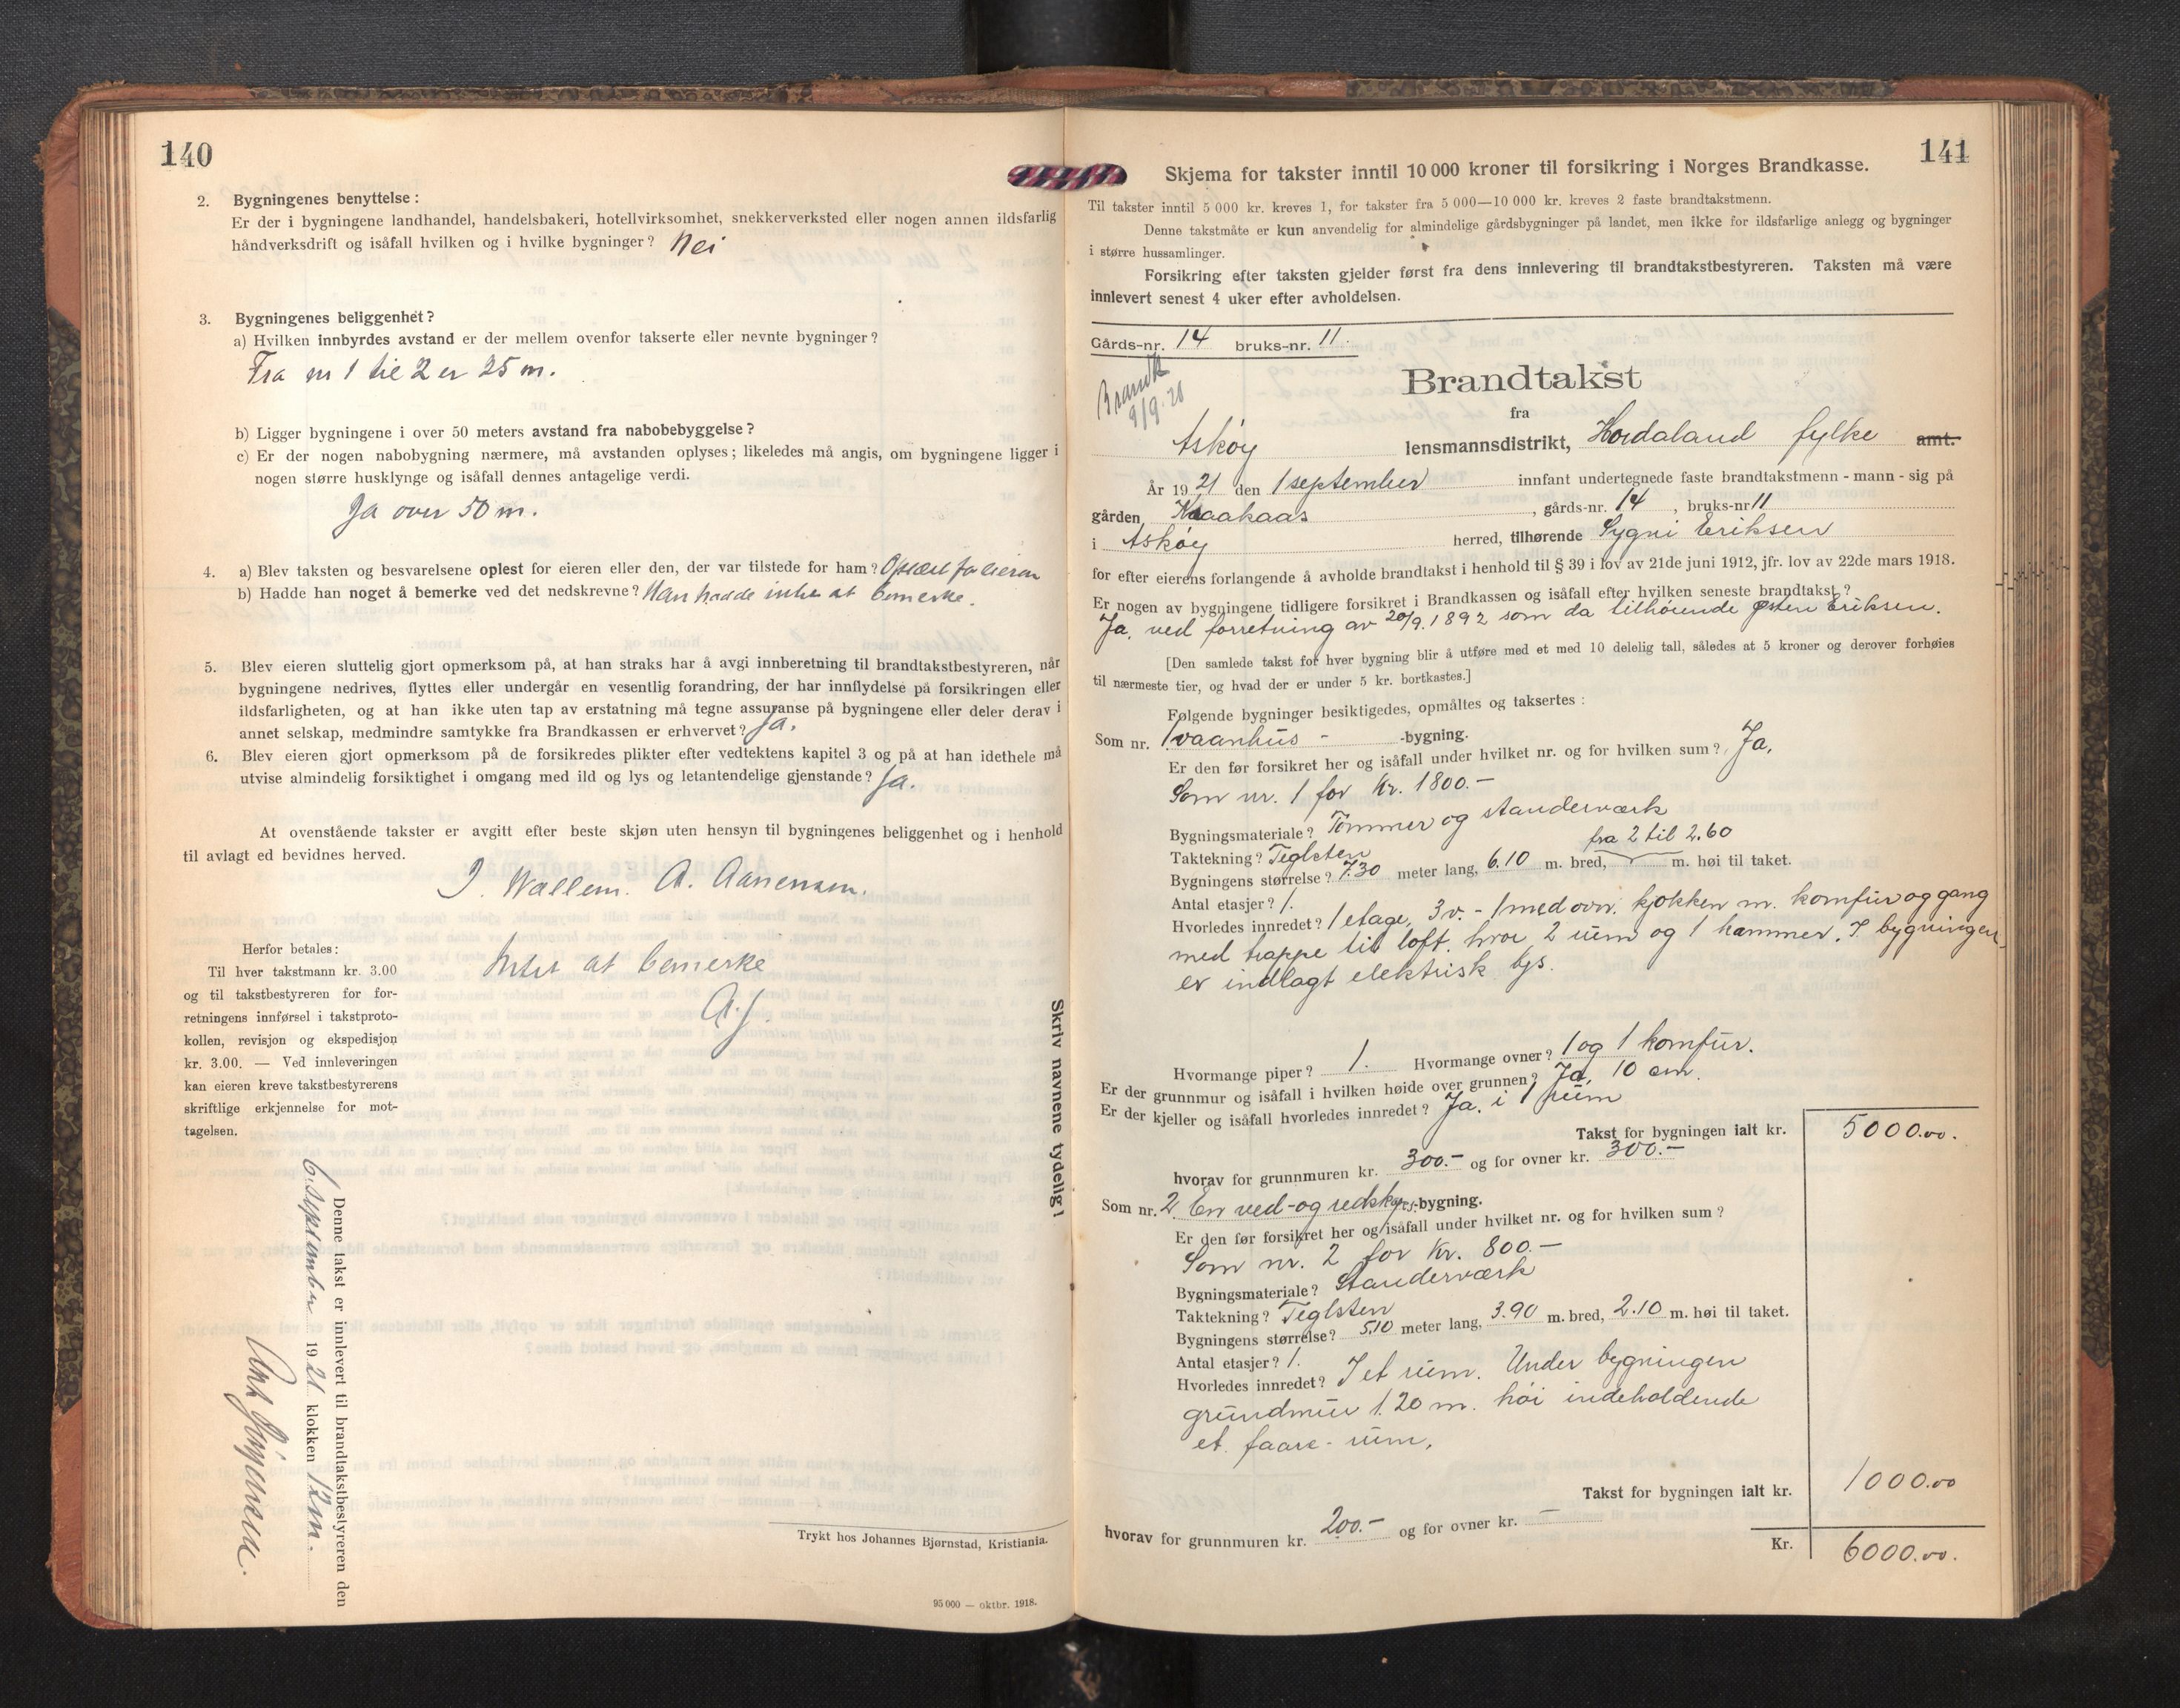 140
2. Bygningenes benyttelse:
Er der i bygningene landhandel, handelsbakeri, hotellvirksomhet, snekkerverksted eller nogen annen ildsfarlig
håndverksdrift og isåfall hvilken og i hvilke bygninger? Nei
3. Bygningenes beliggenhet?
a) Hvilken innbyrdes avstand er der mellem ovenfor takserte eller nevnte bygninger?
Fra nr 1 til 2 er 25 m.
b) Ligger bygningene i over 50 meters avstand fra nabobebyggelse?
c) Er der nogen nabobygning nærmere, må avstanden oplyses; likeledes må angis, om bygningene ligger i
nogen større husklynge og isåfall dennes antagelige verdi.
Ja over 50 m.
4. a) Blev taksten og besvarelsene oplest for eieren eller den, der var tilstede for ham? Oplæst for eieren
b) Hadde han noget å bemerke ved det nedskrevne? Han hadde intet at bemerke.
5. Blev eieren sluttelig gjort opmerksom på, at han straks har å avgi innberetning til brandtakstbestyreren, når
bygningene nedrives, flyttes eller undergår en vesentlig forandring, der har innflydelse på forsikringen eller
ildsfarligheten, og at han ikke uten tap av erstatning må tegne assuranse på bygningene eller deler derav i
annet selskap, medmindre samtykke fra Brandkassen er erhvervet? Ja.
6. Blev eieren gjort opmerksom på de forsikredes plikter efter vedtektens kapitel 3 og på at han idethele må
utvise almindelig forsiktighet i omgang med ild og lys og letantendelige gjenstande? Ja.
At ovenstående takster er avgitt efter beste skjøn uten hensyn til bygningenes beliggenhet og i henhold
til avlagt ed bevidnes herved.
J. Wallem. A. Aanensen.
Intet at bemerke
A. J.
Herfor betales:
Til hver takstmann kr. 3.00
og til takstbestyreren for for-
retningens innførsel i takstproto-
kollen, revisjon og ekspedisjon
kr. 3.00. — Ved innleveringen
kan eieren kreve takstbestyrerens
skriftlige erkjennelse for mot-
tagelsen.
Skriv navnene tydelig!
Denne takst er innlevert til brandtakstbestyreren den
6. september 1921 klokken 12 m.
Trykt hos Johannes Bjørnstad, Kristiania.
95 000 — oktbr. 1918.
141
Skjema for takster inntil 10 000 kroner til forsikring i Norges Brandkasse.
Til takster inntil 5 000 kr. kreves 1, for takster fra 5 000—10 000 kr. kreves 2 faste brandtakstmenn.
Denne takstmåte er kun anvendelig for almindelige gårdsbygninger på landet, men ikke for ildsfarlige anlegg og bygninger
i større hussamlinger.
Forsikring efter taksten gjelder først fra dens innlevering til brandtakstbestyreren. Taksten må være
innlevert senest 4 uker efter avholdelsen.
Gårds-nr. 14 bruks-nr. 11.
Brandtakst
fra
Askøy lensmannsdistrikt, Hordaland fylke amt.
År 1921 den 1 september innfant undertegnede faste brandtakstmenn - mann - sig på
gården Kraakaas, gårds-nr. 14, bruks-nr 11
i Askøy herred, tilhørende Sygni Eriksen
for efter eierens forlangende å avholde brandtakst i henhold til § 39 i lov av 21de juni 1912, jfr. lov av 22de mars 1918.
Er nogen av bygningene tidligere forsikret i Brandkassen og isåfall efter hvilken seneste brandtakst?
Ja, ved forretning av 20/9. 1892 som da tilhørende Østen Eriksen.
[Den samlede takst for hver bygning blir å utføre med et med 10 delelig tall, således at 5 kroner og derover forhøies
til nærmeste tier, og hvad der er under 5 kr. bortkastes.]
Følgende bygninger besiktigedes, opmåltes og taksertes:
Som nr. 1 vaanhus - -bygning.
Er den før forsikret her og isåfall under hvilket nr. og for hvilken sum? Ja,
Som nr. 1 for Kr. 1800.—
Bygningsmateriale? Tømmer og standerværk
Taktekning? Teglsten fra 2 til 2.60
Bygningens størrelse? 7.30 meter lang, 6.10 m. bred, m. høi til taket.
Antal etasjer? 1.
Hvorledes innredet? 1 etage, 3 v. - 1 med ovn. kjøkken m. komfur og gang
med trappe til loft. hvor 2 rum og 1 kammer. I bygningen
er indlagt elektrisk lys.
Hvormange piper? 1. Hvormange ovner? 1 og 1 komfur.
Er der grunnmur og isåfall i hvilken høide over grunnen? Ja, 10 cm.
Er der kjeller og isåfall hvorledes innredet? Ja. i 1 rum
Takst for bygningen ialt kr. 5000.00.
hvorav for grunnmuren kr. 300.— og for ovner kr. 300.—
Som nr. 2. En ved- og redskaps-bygning.
Er den før forsikret her og isåfall under hvilket nr. og for hvilken sum?
Som nr. 2 for Kr. 800.—
Bygningsmateriale? Standerværk
Taktekning? Teglsten
Bygningens størrelse? 5.10 meter lang, 3.90 m. bred, 2.10 m. høi til taket.
Antal etasjer? 1.
Hvorledes innredet? I et rum. Under bygningen
grundmur 1.20 m. høi indeholdende
et faare-rum.
Takst for bygningen ialt kr. 1000.00
hvorav for grunnmuren kr. 200.— og for ovner kr. —
Kr. 6000.00.